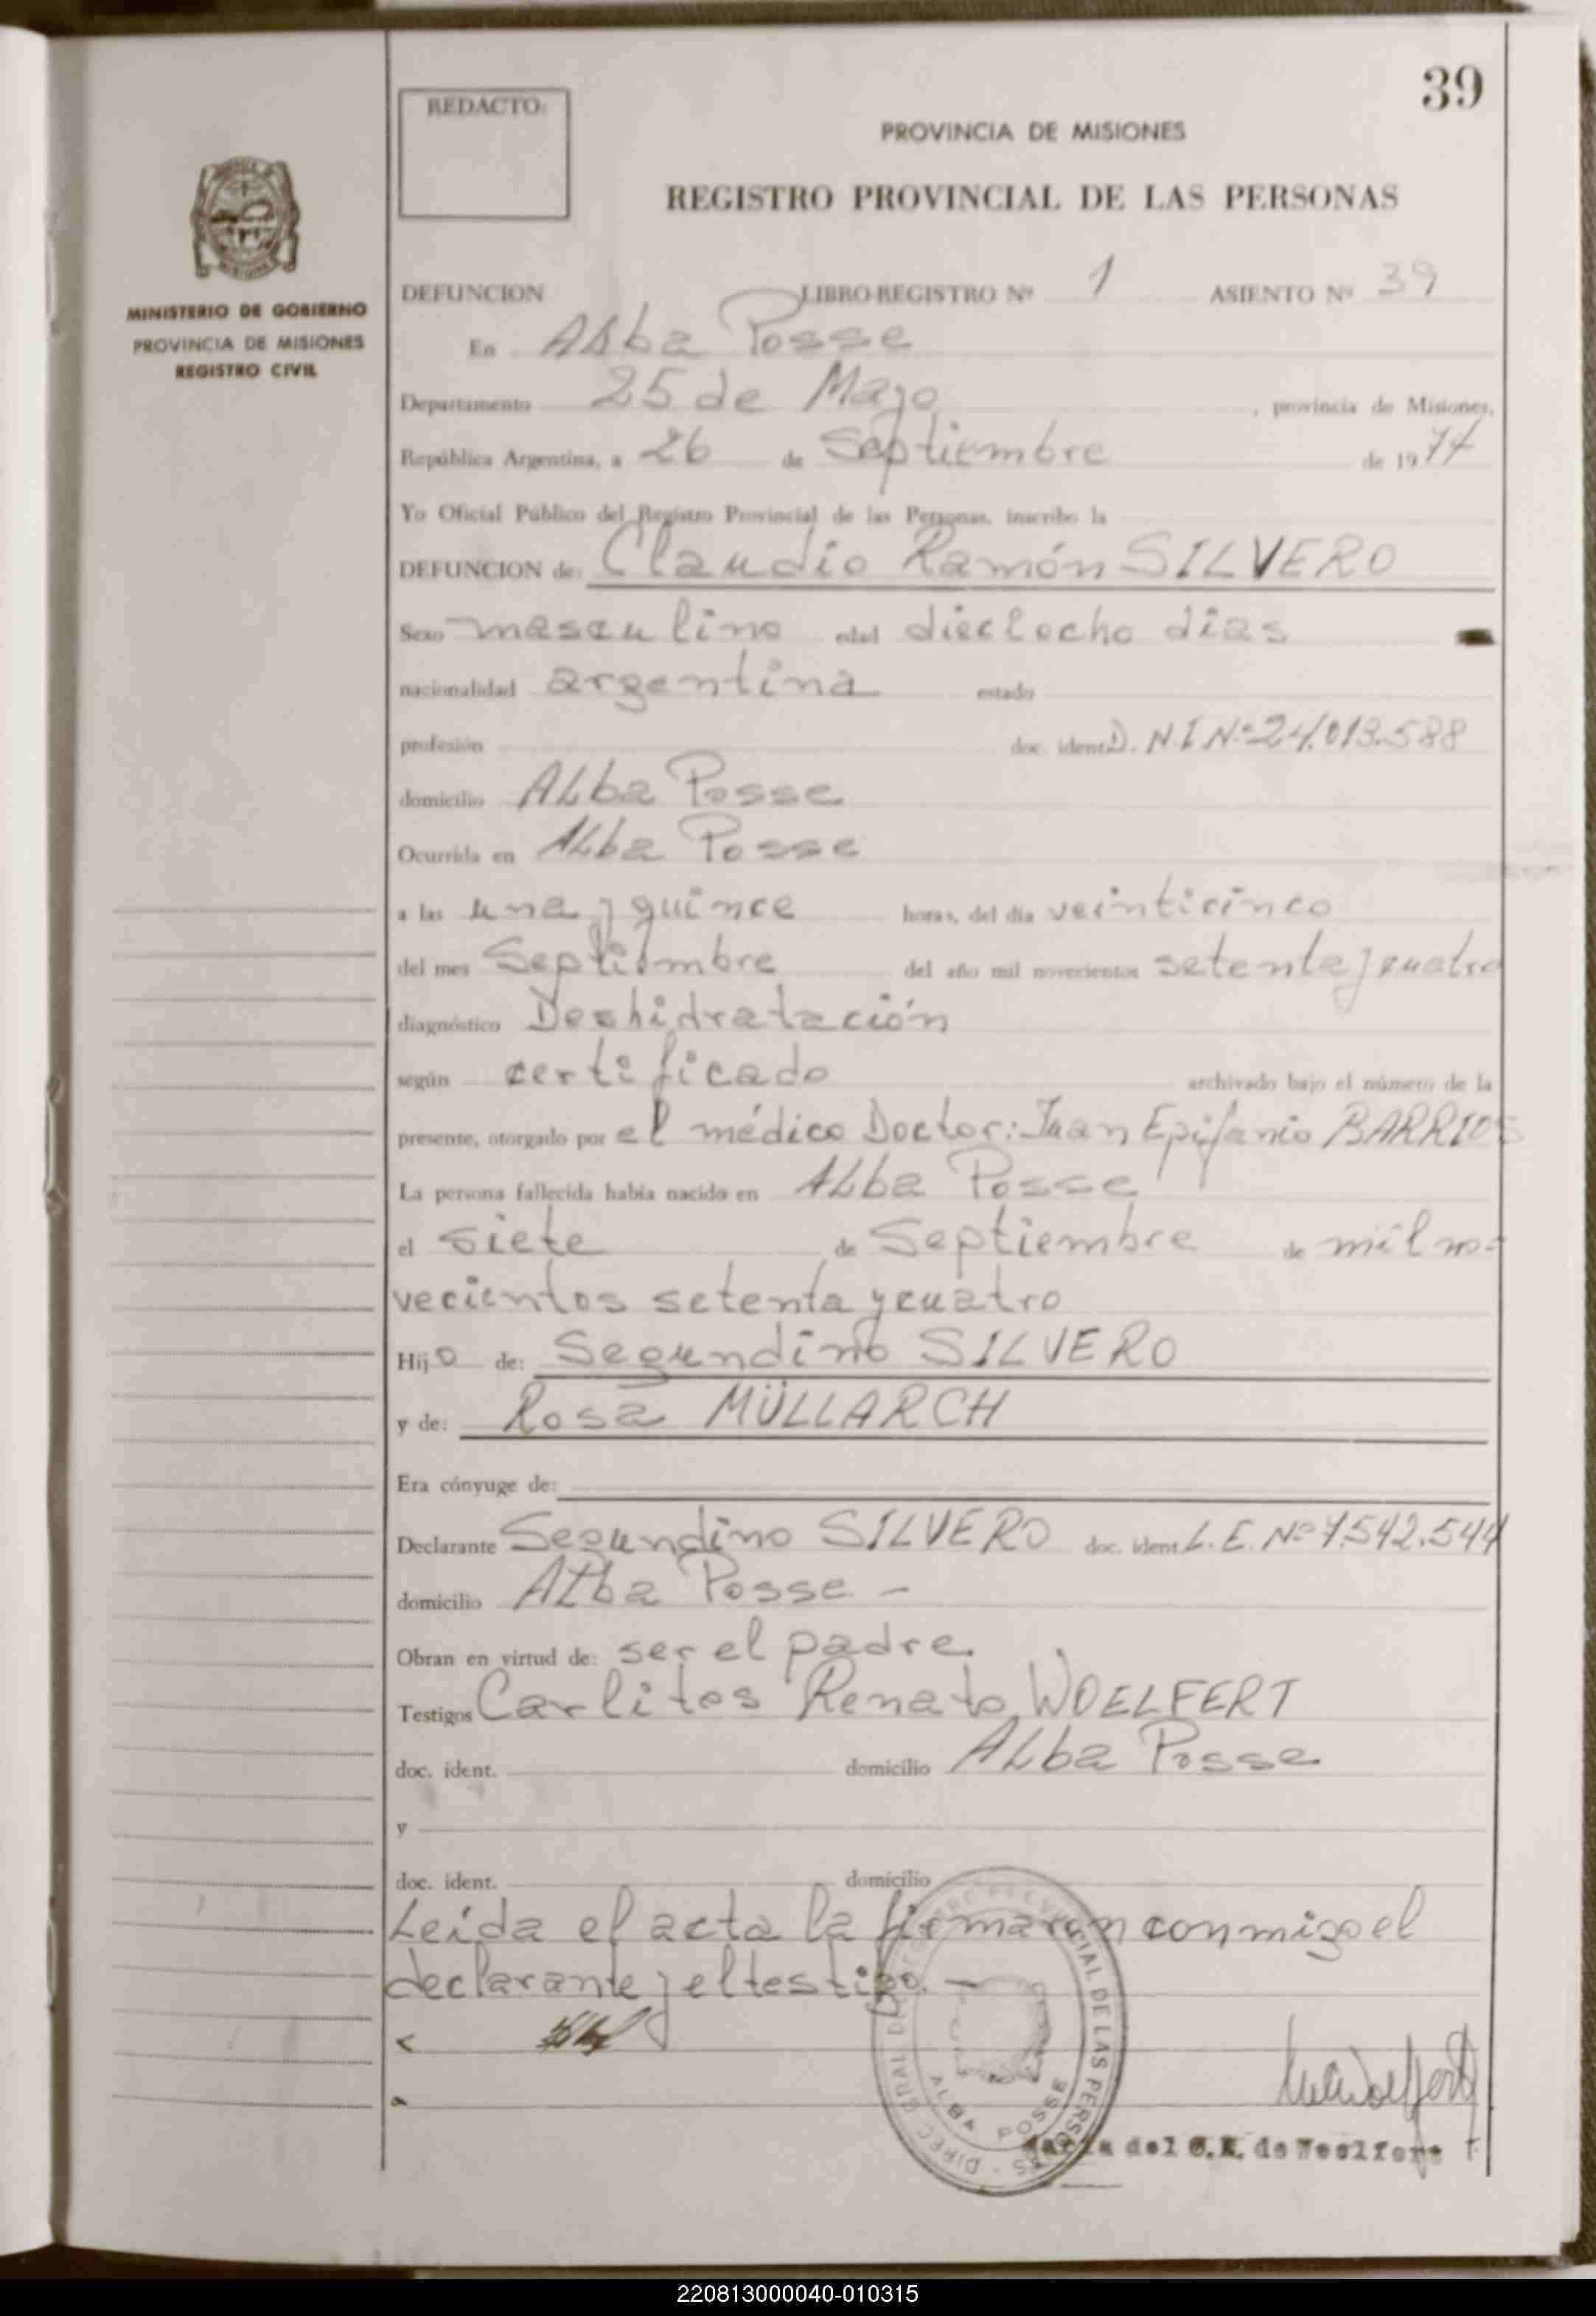 39
REDACTO:
PROVINCIA DE MISIONES
REGISTRO PROVINCIAL DE LAS PERSONAS
MINISTERIO DE GOBIERNO
PROVINCIA DE MISIONES
REGISTRO CIVIL
DEFUNCION LIBRO REGISTRO Nº 1 ASIENTO Nº 39
En Alba Posse
Departamento 25 de Mayo , provincia de Misiones,
República Argentina, a 26 de Septiembre de 1974
Yo Oficial Público del Registro Provincial de las Personas, inscribo la
DEFUNCION de: Claudio Ramón SILVERO
Sexo masculino edad dieciocho dias
nacionalidad argentina estado
profesión doc. ident. D.N.I Nº 24.013.588
domicilio Alba Posse
Ocurrida en Alba Posse
a las una y quince horas, del día veinticinco
del mes Septiembre del año mil novecientos setenta y cuatro
diagnóstico Deshidratación
según certificado archivado bajo el número de la
presente, otorgado por el médico Doctor: Juan Epifanio BARRIOS
La persona fallecida había nacido en Alba Posse
el siete de Septiembre de mil no-
vecientos setenta y cuatro
Hijo de: Segundino SILVERO
y de: Rosa MÜLLARCH
Era cónyuge de:
Declarante Segundino SILVERO doc. ident. L.E. Nº 7.542.544
domicilio Alba Posse -
Obran en virtud de: ser el padre
Testigos Carlitos Renato WOELFERT
doc. ident. domicilio Alba Posse
y
doc. ident. domicilio
Leída el acta la firmaron conmigo el
declarante y el testigo. -
DIREC. GRAL. DE LAS PERSONAS
ALBA POSSE
María del C.K. de Woelfert
220813000040-010315